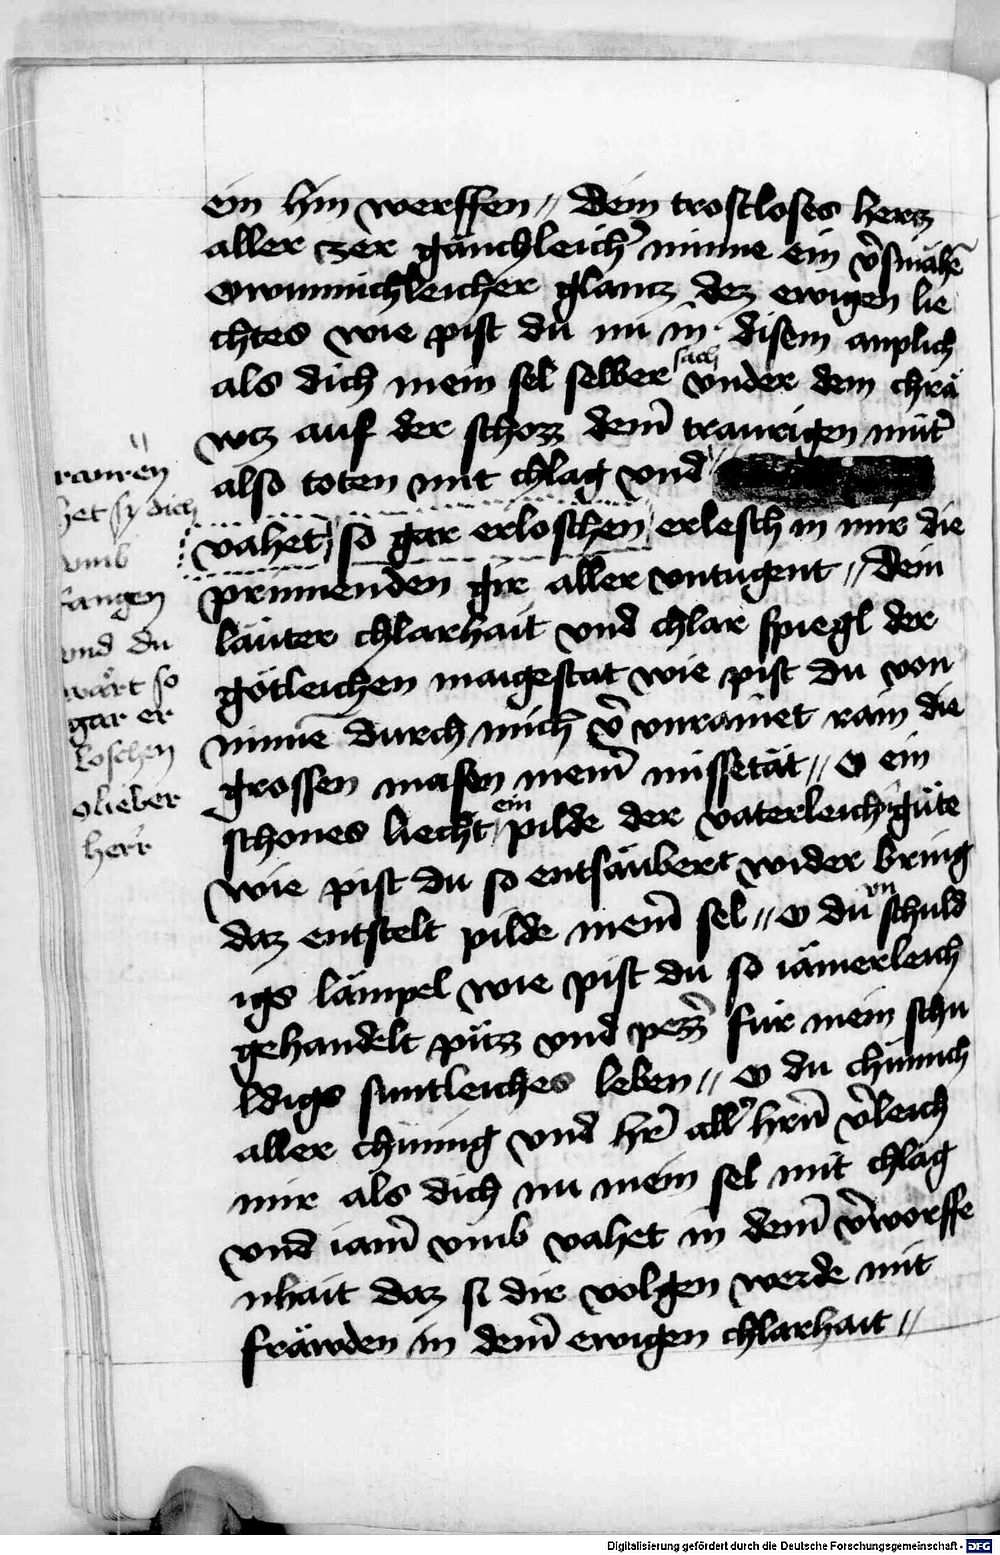 ein hin werffen // dein trostloses hertz
aller zer gänchleich' minne ein v̄smähē
O wunnichleicher glantz dez ewigen lie
chtes wie pist du nu in disem anplich
als dich mein sel selber sach vnder dem chrä
wtz auf der schozz dein̄ traurigen mūt'
also toten mit chlag vnd
vahet so gar erloschen erlesch in mir die
prinnenden gir aller vntugent // dein
läuter chlarhait vnd chlar spiegl der
götleichen maigestat wie pist du von
minnē durch mich v̄ vnrainet rain die
grossen masen mein̄ missetät // O ein
schones liecht ein pilde der vaterleich̄ güte
wie pist du so entsäubert wider bring
daz entstelt pilde mein̄ sel // O du vn schuld
igs lämpel wie pist du so iämerleich
gehandelt pütz vnd pezz' für mein schu
ldigs suntleiches leben // O du chünich
aller chünig vnd hr̄ all' hrn̄ v̄leich
mir als dich nu mein sel mit chlag
vnd iam̄ vmb vahet in dein̄ v̄worffe
nhait daz si dir volgen werde mit
fräwden in dein̄ ewigen chlarhait //
rauren
het sy dich
vmb
fangen
vnd du
wärt so
gar er
loschen
o lieber
herr
Digitalisierung gefördert durch die Deutsche Forschungsgemeinschaft - DFG